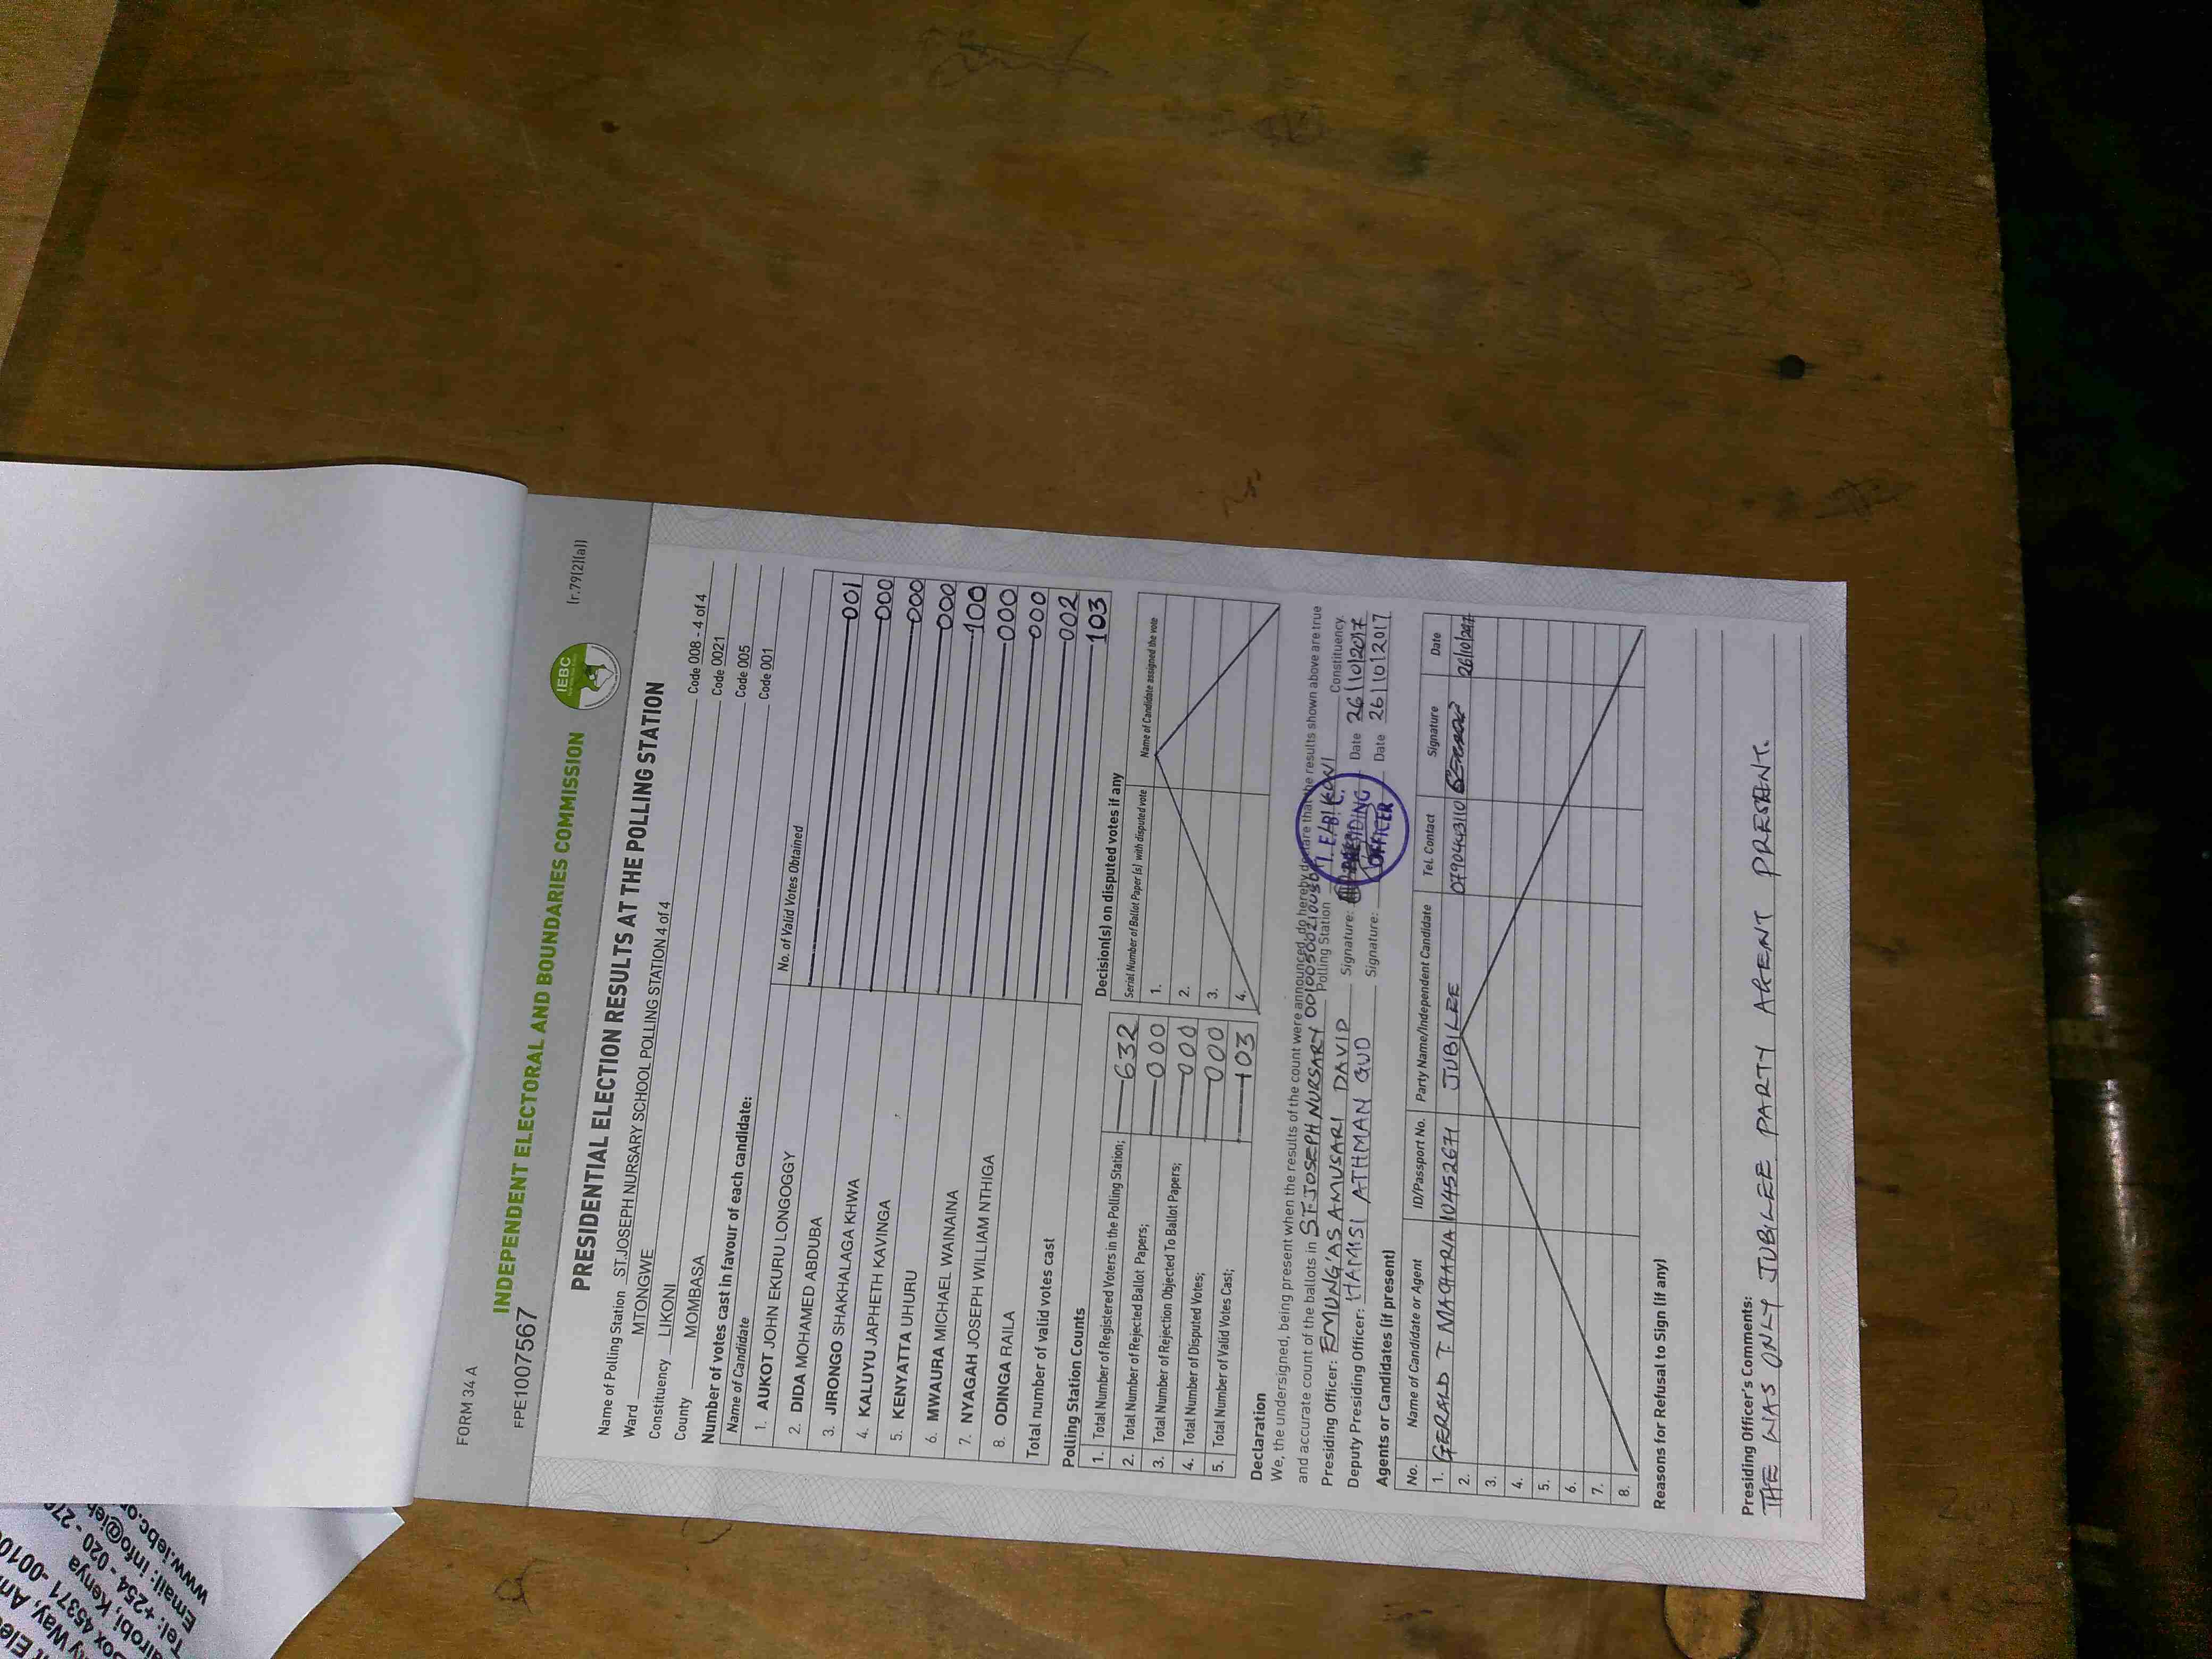 FORM 34 A
INDEPENDENT ELECTORAL AND BOUNDARIES COMMISSION
IEBC
(r.79(2)(a))
FPE1007567
PRESIDENTIAL ELECTION RESULTS AT THE POLLING STATION
Name of Polling Station ST.JOSEPH NURSARY SCHOOL POLLING STATION 4 of 4 Code 008 - 4 of 4
Ward MTONGWE Code 0021
Constituency LIKONI Code 005
County MOMBASA Code 001
Number of votes cast in favour of each candidate:
Name of Candidate No. of Valid Votes Obtained
1. AUKOT JOHN EKURU LONGOGGY 001
2. DIDA MOHAMED ABDUBA 000
3. JIRONGO SHAKHALAGA KHWA 000
4. KALUYU JAPHETH KAVINGA 000
5. KENYATTA UHURU 100
6. MWAURA MICHAEL WAINAINA 000
7. NYAGAH JOSEPH WILLIAM NTHIGA 000
8. ODINGA RAILA 002
Total number of valid votes cast 103
Polling Station Counts
1. Total Number of Registered Voters in the Polling Station; 632
2. Total Number of Rejected Ballot Papers; 000
3. Total Number of Rejection Objected To Ballot Papers; 000
4. Total Number of Disputed Votes; 000
5. Total Number of Valid Votes Cast; 103
Decision(s) on disputed votes if any
Serial Number of Ballot Paper (s) with disputed vote Name of Candidate assigned the vote
1.
2.
3.
4.
Declaration
We, the undersigned, being present when the results of the count were announced, do hereby declare that the results shown above are true
and accurate count of the ballots in ST. JOSEPH NURSARY Polling Station LIKONI Constituency.
Presiding Officer: EMUNG'AS AMUSARI DAVID Signature: Date 26/10/2017
Deputy Presiding Officer: HAMISI ATHMAN GUD Signature: Date 26/10/2017
PRESIDING
OFFICER
Agents or Candidates (if present)
No. Name of Candidate or Agent ID/Passport No. Party Name/Independent Candidate Tel. Contact Signature Date
1. GERALD T. MACHARIA 10452671 JUBILEE 0790443110 26/10/2017
2.
3.
4.
5.
6.
7.
8.
Reasons for Refusal to Sign (if any)
Presiding Officer's Comments:
THE WAS ONLY JUBILEE PARTY AGENT PRESENT.